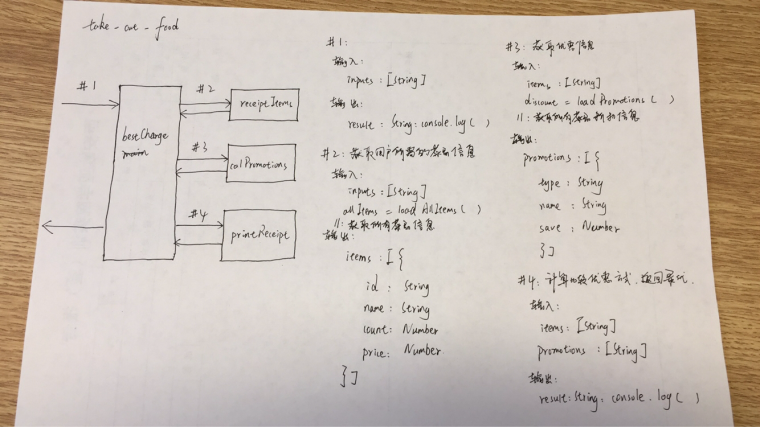 take-out-food
#1
#2
receiptItems
bestCharge
main
#3
calPromotions
#4
printReceipt
#1:
输入:
inputs:[String]
输出:
result:String:console.log( )
#2:获取用户所需的菜品信息
输入:
inputs:[String]
allItems = loadAllItems( )
//:获取所有菜品信息
输出:
items:[{
id: String
name: String
count: Number
price: Number
}]
#3:获取优惠信息
输入:
items:[String]
discount = loadPromotions( )
//:获取所有菜品折扣信息
输出:
promotions:[{
type: String
name: String
save: Number
}]
#4:计算比较优惠方式,返回
输入:
items:[String]
promotions:[String]
输出:
result:String:console.log( )